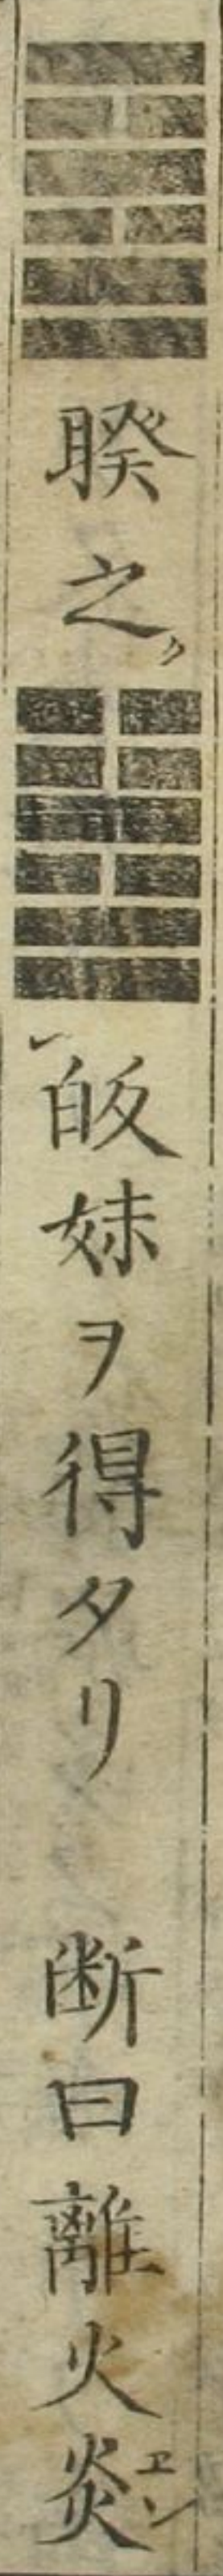 ䷥睽之ク䷵皈妹ヲ得タリ　断曰離火炎エン